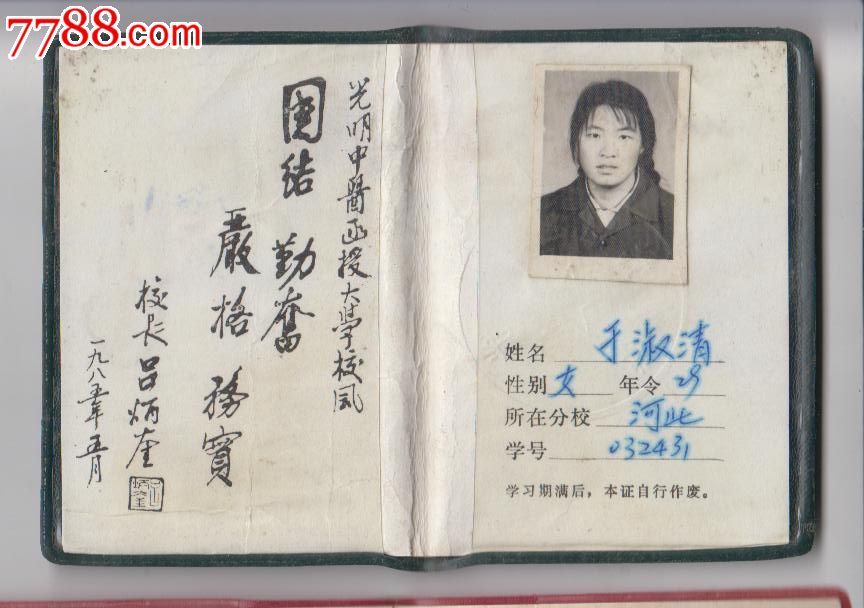 7788.com
光明中醫函授大學校风
團结 勤奮
嚴格 務實
校长 吕炳奎
一九八五年五月
姓名 于淑清
性别 女 年令 29
所在分校 河北
学号 032431
学习期满后，本证自行作废。